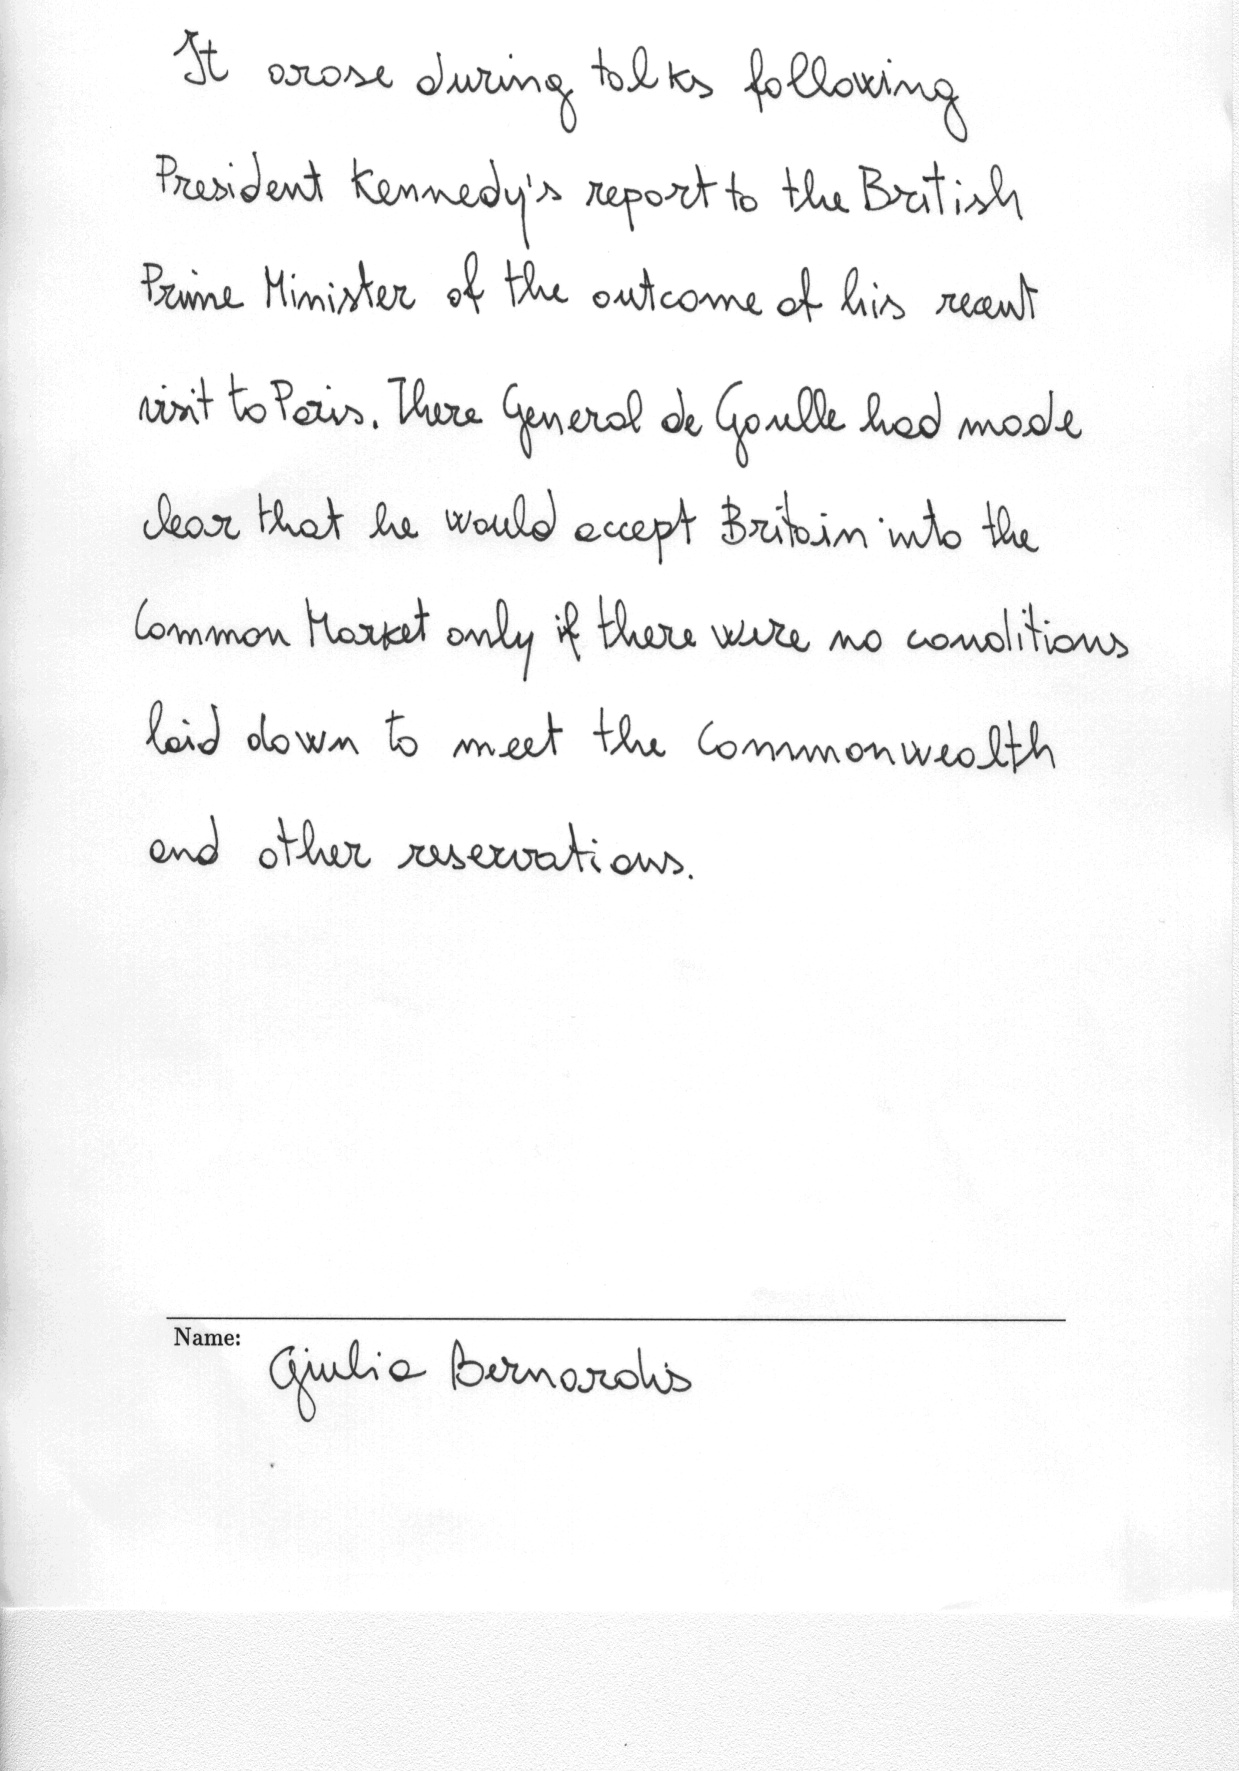 It arose during talks following
President Kennedy's report to the British
Prime Minister of the outcome of his recent
visit to Paris. There General de Gaulle had made
clear that he would accept Britain into the
Common Market only if there were no conditions
laid down to meet the Commonwealth
and other reservations.
Name:
Giulia Bernardis